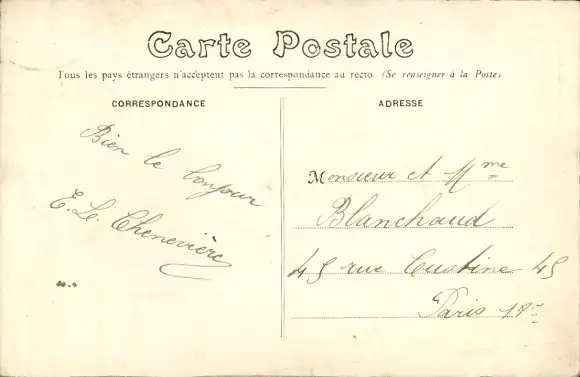 Carte Postale
Tous les pays étrangers n'acceptent pas la correspondance au recto (Se renseigner à la Poste)
CORRESPONDANCE
Bien le bonjour
E. Le Chenevière
ADRESSE
Monsieur et Mme
Blanchaud
45 rue Custine 45
Paris 18e